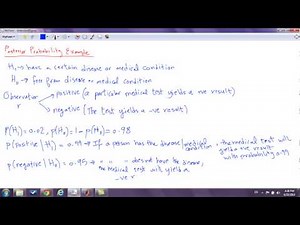 Posterior Probability Example
H₁ → have a certain disease or medical condition
H₀ → free from disease or medical condition
Observation r
positive (a particular medical test yields a +ve result)
negative (The test yields a -ve result)
P(H₁) = 0.02, p(H₀) = 1 - p(H₁) = 0.98
p(positive | H₁) = 0.99 → If a person has the disease/medical condition, the medical test will yield a +ve result with probability 0.99
p(negative | H₀) = 0.95 → " " doesnot have the disease,
the medical test will yield a
-ve r